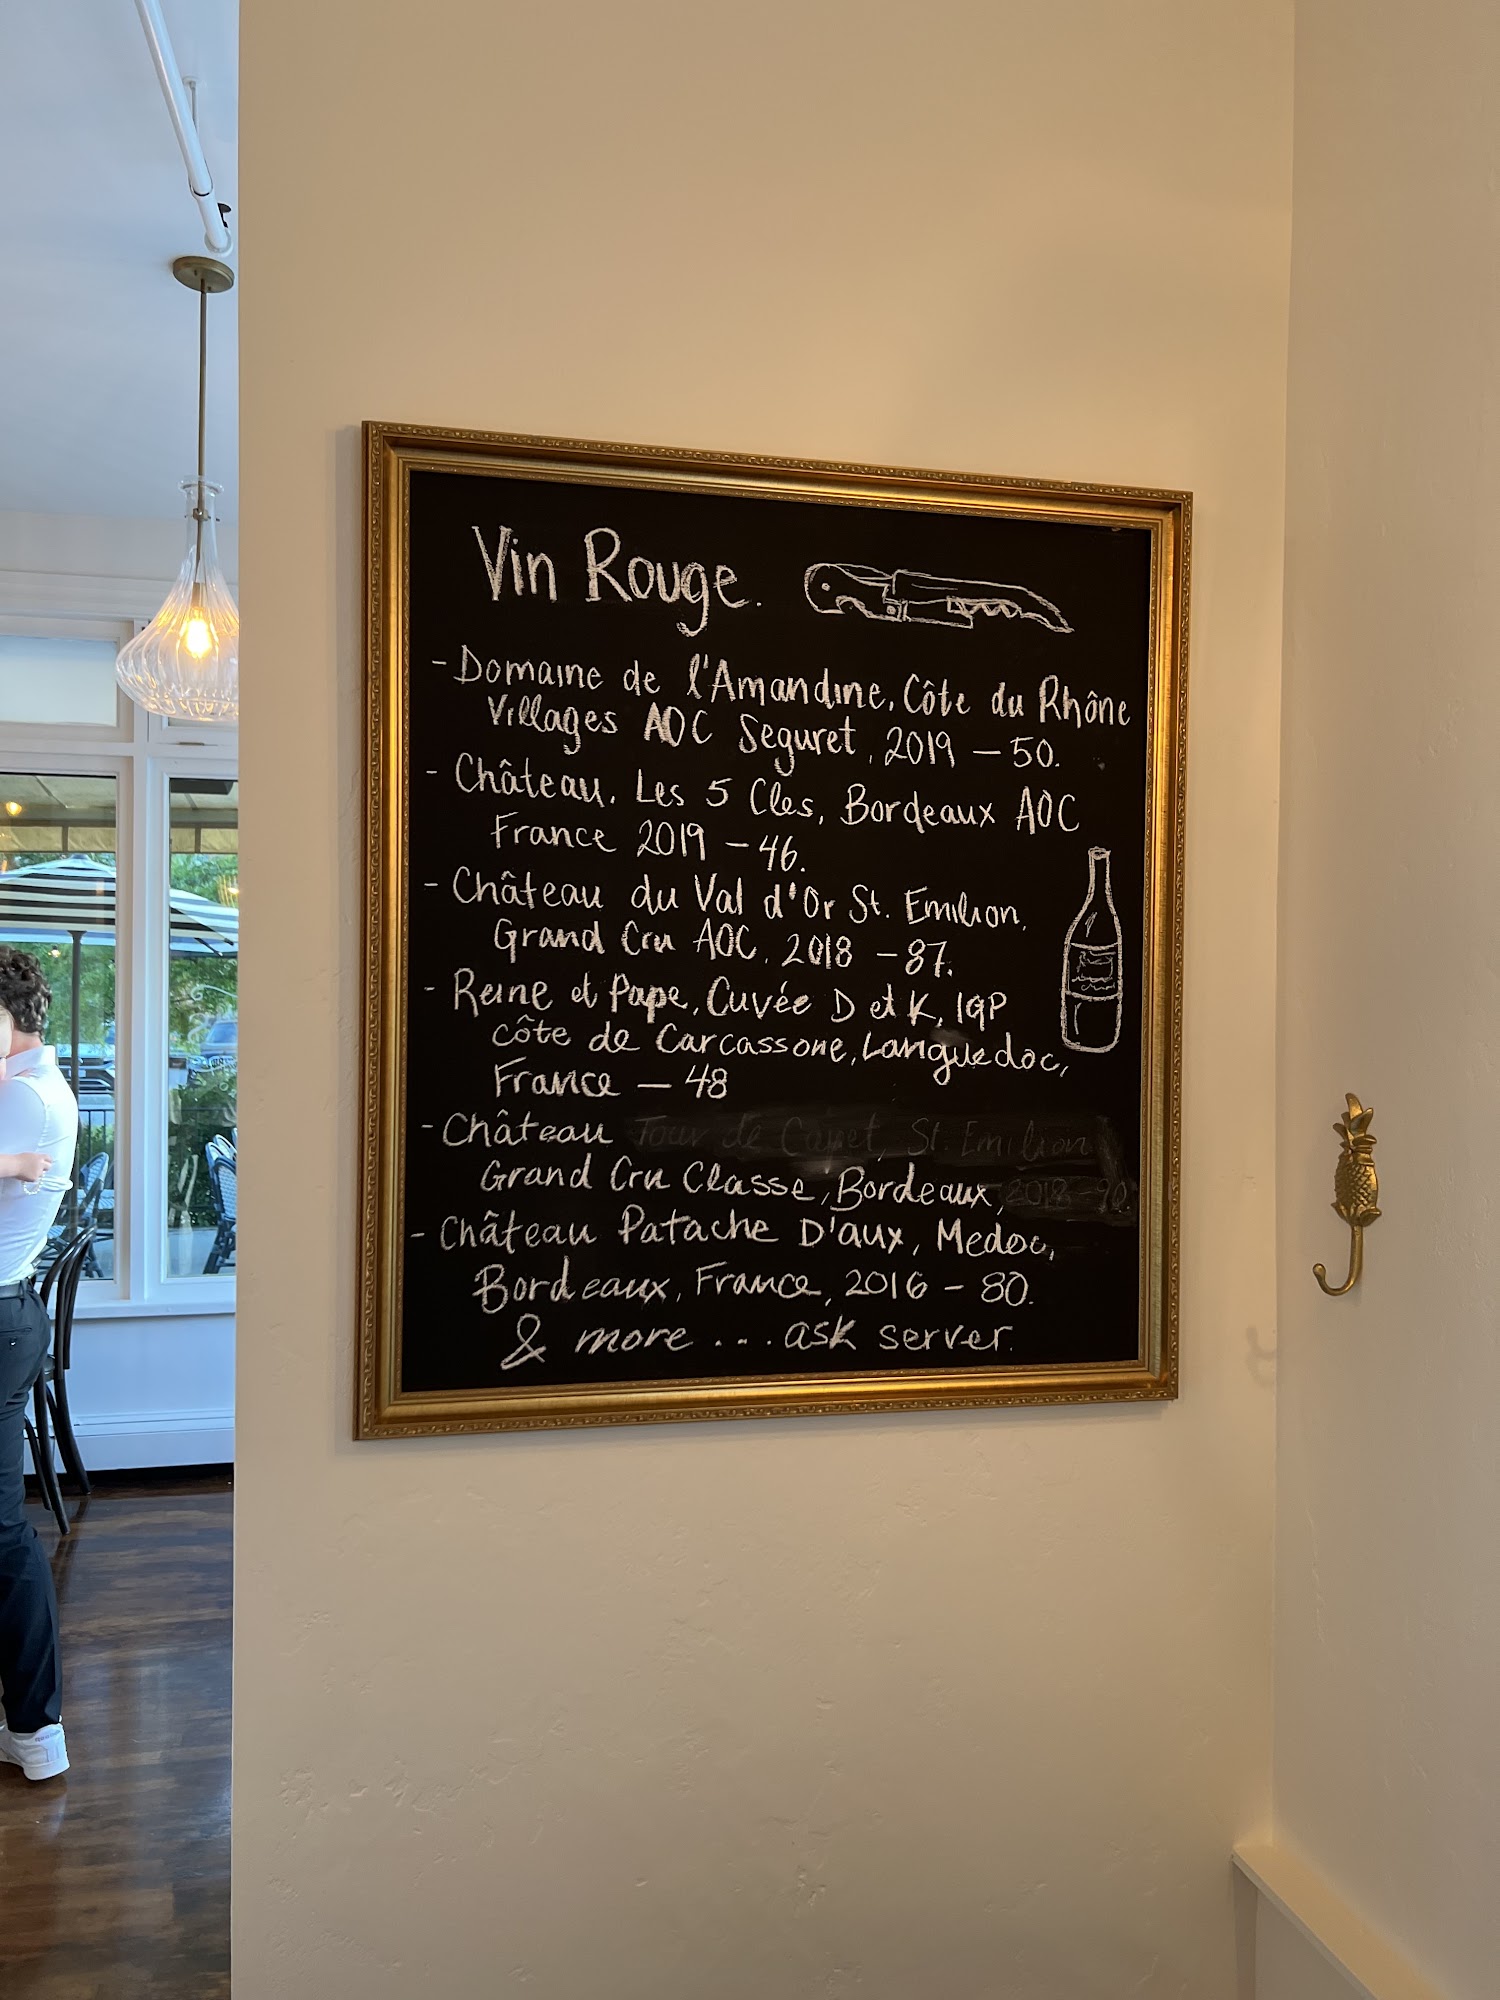 Vin Rouge.
- Domaine de l'Amandine, Côte du Rhône
Villages AOC Seguret, 2019 – 50.
- Château, Les 5 Cles, Bordeaux AOC
France 2019 – 46.
- Château du Val d'Or St. Emilion,
Grand Cru AOC, 2018 – 87.
- Reine et Pape, Cuvée D et K, IGP
côte de Carcassone, Languedoc,
France – 48
- Château Tour de Capet, St. Emilion
Grand Cru Classe, Bordeaux, 2018 - 90
- Château Patache D'aux, Medoc,
Bordeaux, France, 2016 - 80.
& more ... ask server.